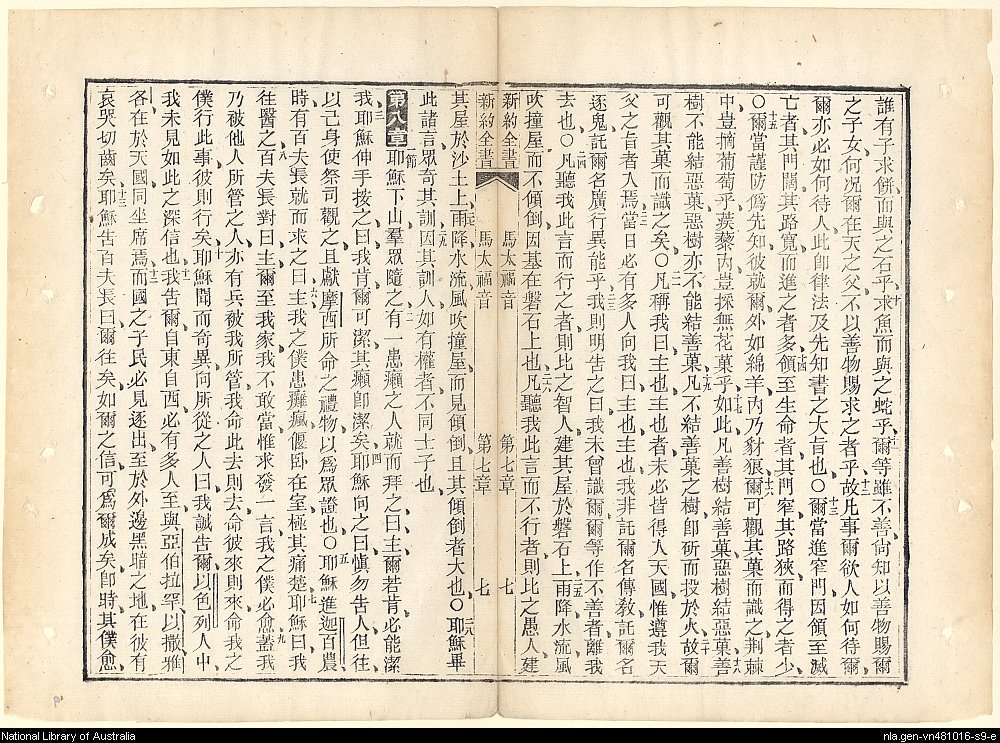 誰有子求餅而與之石乎求魚而與之蛇乎爾等雖不善尙知以善物賜爾
之子女何况爾在天之父不以善物賜求之者乎故凡事爾欲人如何待爾
爾亦必如何待人此卽律法及先知書之大旨也〇爾當進窄門因領至滅
亡者其門闊其路寬而進之者多領至生命者其門窄其路狹而得之者少
〇爾當謹防僞先知彼就爾外如綿羊內乃豺狼爾可觀其菓而識之荊棘
中豈摘葡萄乎蒺藜內豈採無花菓乎如此凡善樹結善菓惡樹結惡菓善
樹不能結惡菓惡樹亦不能結善菓凡不結善菓之樹卽斫而投於火故爾
可觀其菓而識之矣〇凡稱我曰主也主也者未必皆得入天國惟遵我天
父之旨者入焉當日必有多人向我曰主也主也我非託爾名傳敎託爾名
逐鬼託爾名廣行異能乎我則明告之曰我未曾識爾爾等作不善者離我
去也〇凡聽我此言而行之者則比之智人建其屋於磐石上雨降水流風
吹撞屋而不傾倒因基在磐石上也凡聽我此言而不行者則比之愚人建
新約全書 馬太福音 第七章 七
新約全書 馬太福音 第七章 七
其屋於沙土上雨降水流風吹撞屋而見傾倒且其傾倒者大也〇耶穌畢
此諸言眾奇其訓因其訓人如有權者不同士子也
第八章 一節耶穌下山羣眾隨之有一患癩之人就而拜之曰主爾若肯必能潔
我耶穌伸手按之曰我肯爾可潔其癩卽潔矣耶穌向之曰愼勿告人但往
以己身使祭司觀之且獻摩西所命之禮物以爲眾證也〇耶穌進迦百農
時有百夫長就而求之曰主我之僕患癱瘋偃卧在室極其痛楚耶穌曰我
往醫之百夫長對曰主爾至我家我不敢當惟求發一言我之僕必愈蓋我
乃被他人所管之人亦有兵被我所管我命此去則去命彼來則來命我之
僕行此事彼則行矣耶穌聞而奇異向所從之人曰我誠告爾以色列人中
我未見如此之深信也我告爾自東自西必有多人至與亞伯拉罕以撒雅
各在於天國同坐席焉而國之子民必見逐出至於外邊黑暗之地在彼有
哀哭切齒矣耶穌告百夫長曰爾往矣如爾之信可爲爾成矣卽時其僕愈
National Library of Australia
nla.gen-vn481016-s9-e